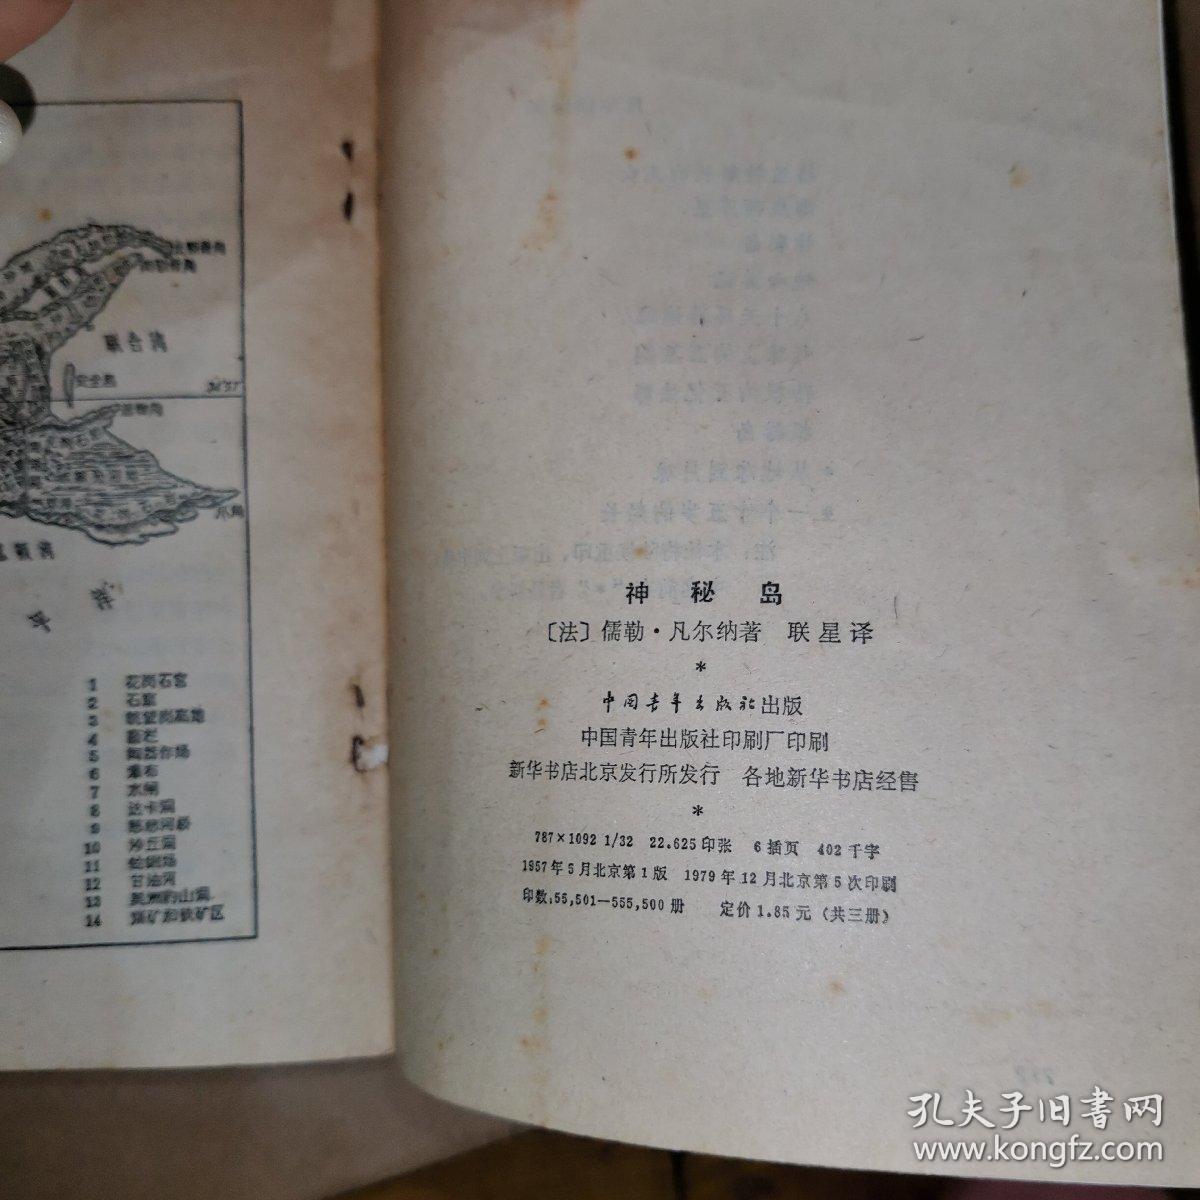 联合湾
安全岛
爪角
1 花岗石宫
2 石窟
3 眺望岗高地
4 畜栏
5 陶器作场
6 瀑布
7 水闸
8 达卡洞
9 慈悲河桥
10 沙丘洞
11 蛤蜊场
12 甘油河
13 美洲豹山洞
14 煤矿和铁矿区
神 秘 岛
〔法〕儒勒·凡尔纳著 联星译
*
中国青年出版社出版
中国青年出版社印刷厂印刷
新华书店北京发行所发行 各地新华书店经售
*
787×1092 1/32 22.625印张 6插页 402千字
1957年5月北京第1版 1979年12月北京第5次印刷
印数:55,501—555,500册 定价1.85元(共三册)
孔夫子旧书网
www.kongfz.com